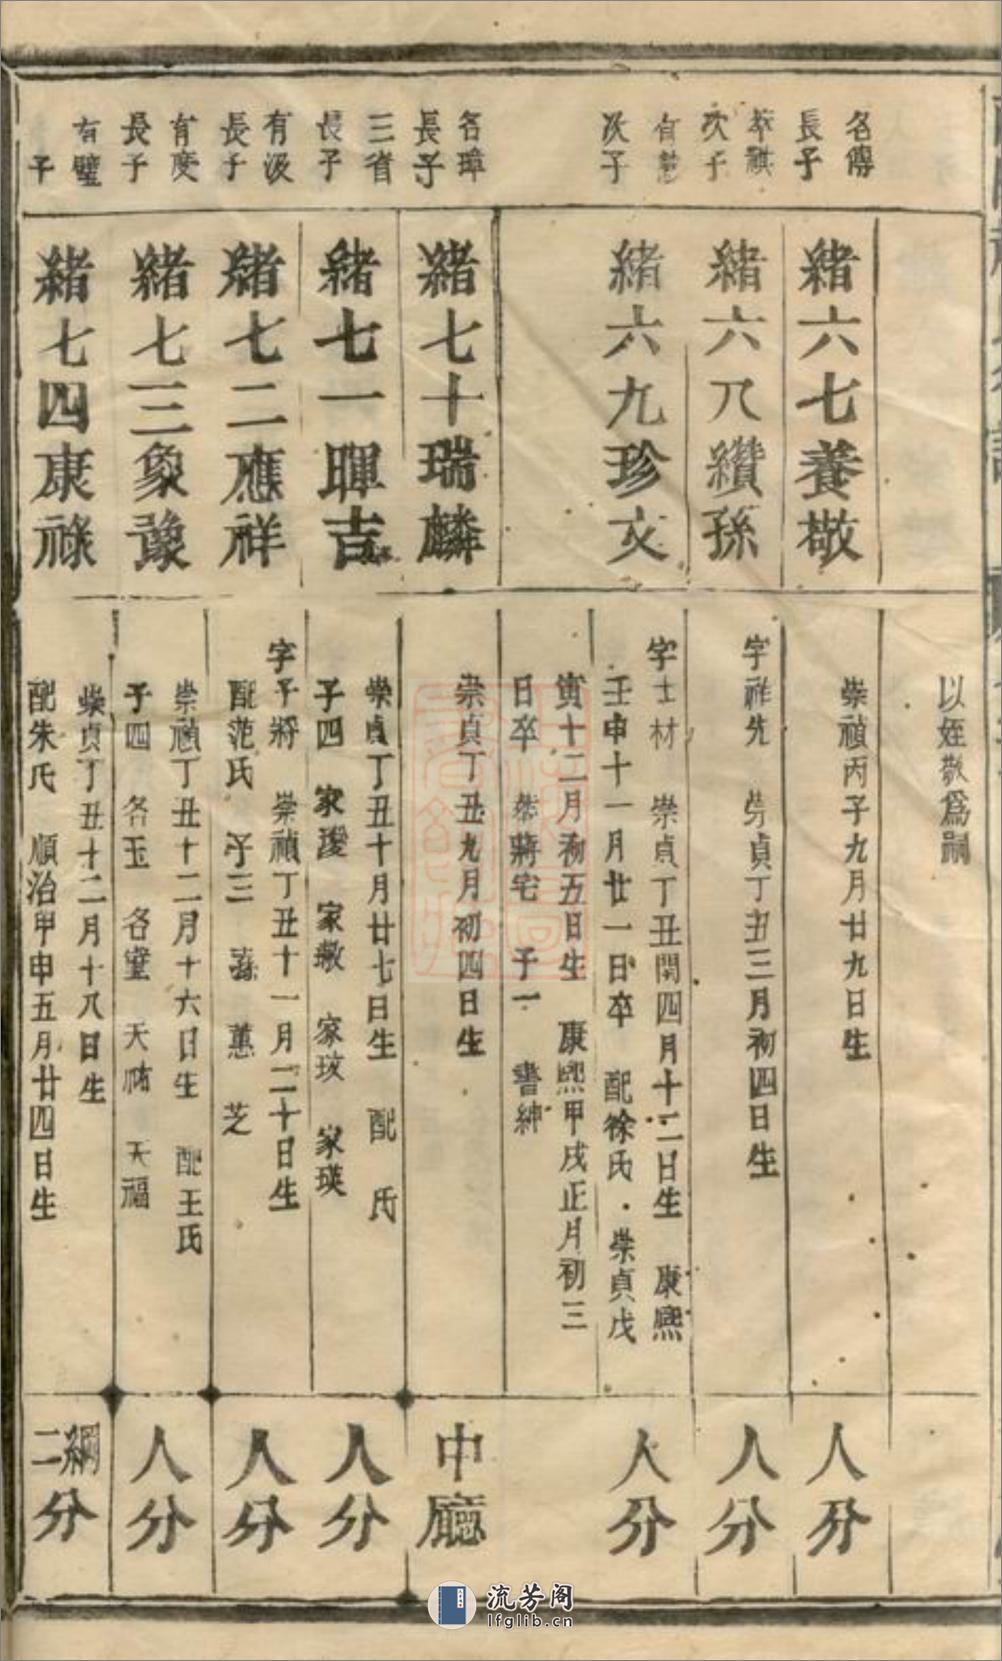 以姪敬爲嗣
名傳
長子
緒六七養敬
崇禎丙子九月廿九日生
人分
次子
緒六八纘孫
字祚先 崇貞丁丑三月初四日生
人分
次子
緒六九珍文
字士材 崇貞丁丑閏四月十二日生 康熙
壬申十一月廿一日卒 配徐氏 崇貞戊
寅十二月初五日生 康熙甲戌正月初三
日卒 葬蔣宅 子一 書紳
人分
名璋
長子
緒七十瑞麟
崇貞丁丑九月初四日生
中廳
三省
長子
緒七一暉吉
崇貞丁丑十月廿七日生 配 氏
子四 家璦 家璥 家玫 家瑛
人分
有汲
長子
緒七二應祥
字予將 崇禎丁丑十一月二十日生
配范氏 子三 蓀 蕙 芝
人分
有度
長子
緒七三象豫
崇禎丁丑十二月十六日生 配王氏
子四 名玉 名堂 天祐 天福
人分
有璧
子
緒七四康祿
崇貞丁丑十二月十八日生
配朱氏 順治甲申五月廿四日生
綱二分
流芳阁
lfglib.cn